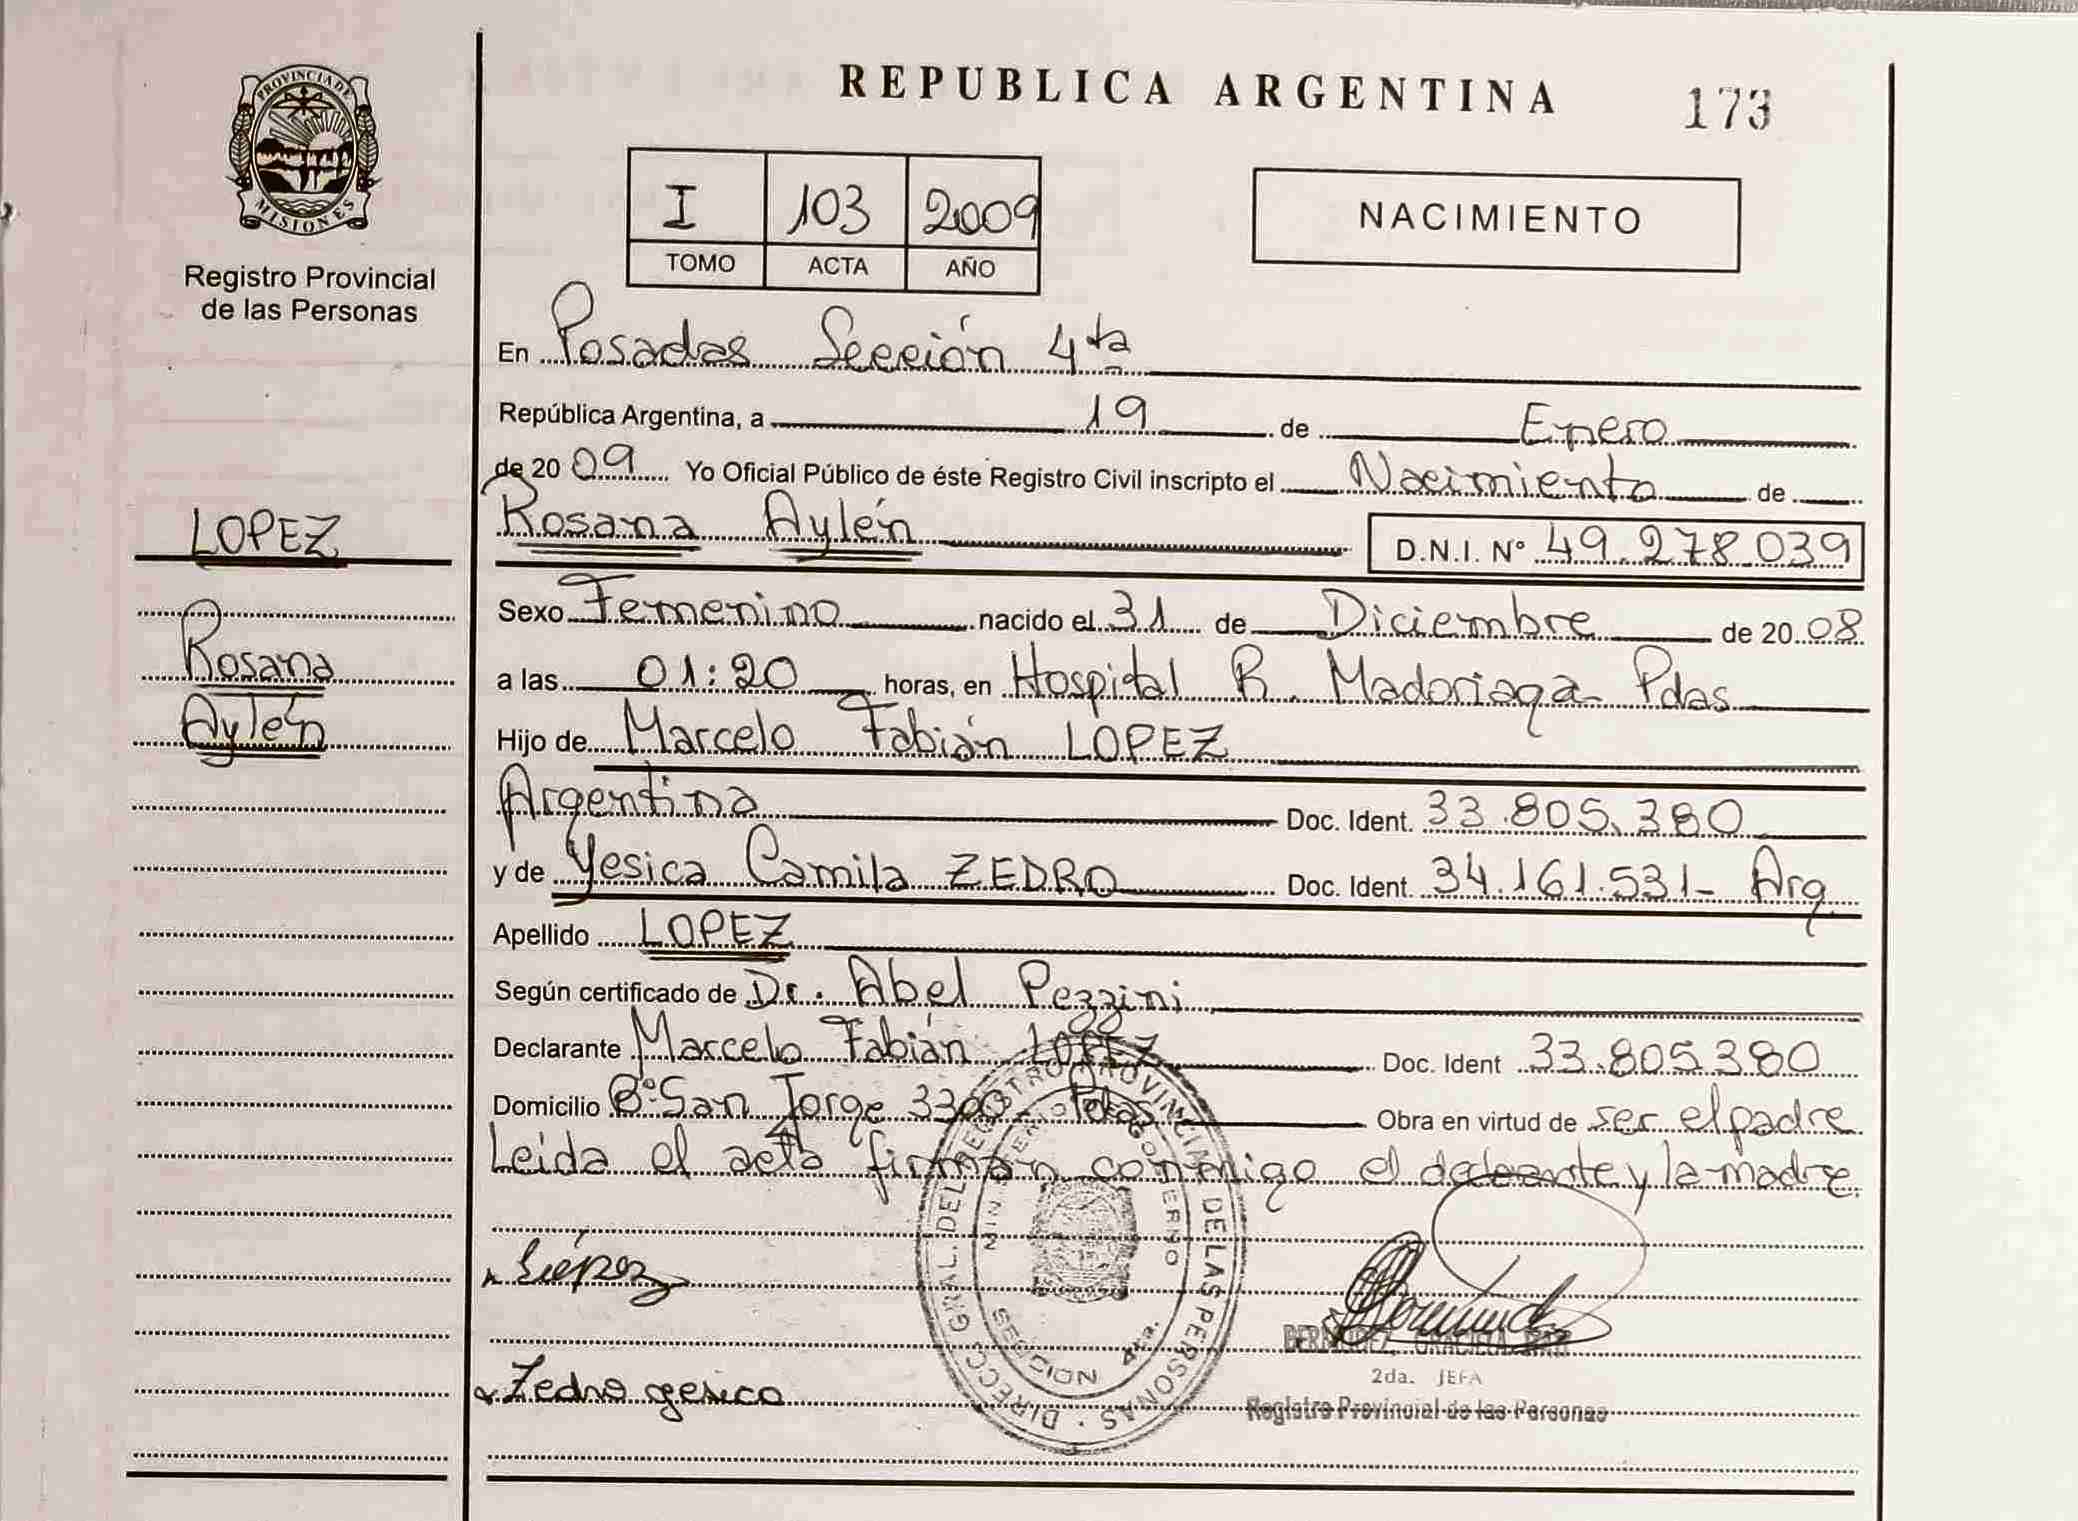 PROVINCIA DE
MISIONES
Registro Provincial
de las Personas
LOPEZ
Rosana
Aylén
REPUBLICA ARGENTINA
173
I 103 2009
TOMO ACTA AÑO
NACIMIENTO
En Posadas Sección 4ta
República Argentina, a 19 de Enero
de 20 09 Yo Oficial Público de éste Registro Civil inscripto el Nacimiento de
Rosana Aylén D.N.I. N° 49.278.039
Sexo Femenino nacido el 31 de Diciembre de 20 08
a las 01:20 horas, en Hospital R. Madariaga Pdas
Hijo de Marcelo Fabián LOPEZ
Argentina Doc. Ident. 33.805.380
y de Yesica Camila ZEDRO Doc. Ident. 34.161.531- Arg.
Apellido LOPEZ
Según certificado de Dr. Abel Pezzini
Declarante Marcelo Fabián LOPEZ Doc. Ident 33.805.380
Domicilio B° San Jorge 3300 - Pdas Obra en virtud de ser el padre
Leida el acta firman conmigo el declarante y la madre.
DIRECC. GRAL. DEL REGISTRO PROVINCIAL DE LAS PERSONAS
SECCION 4ta.
Zedro yesica
2da. JEFA
Registro Provincial de las Personas